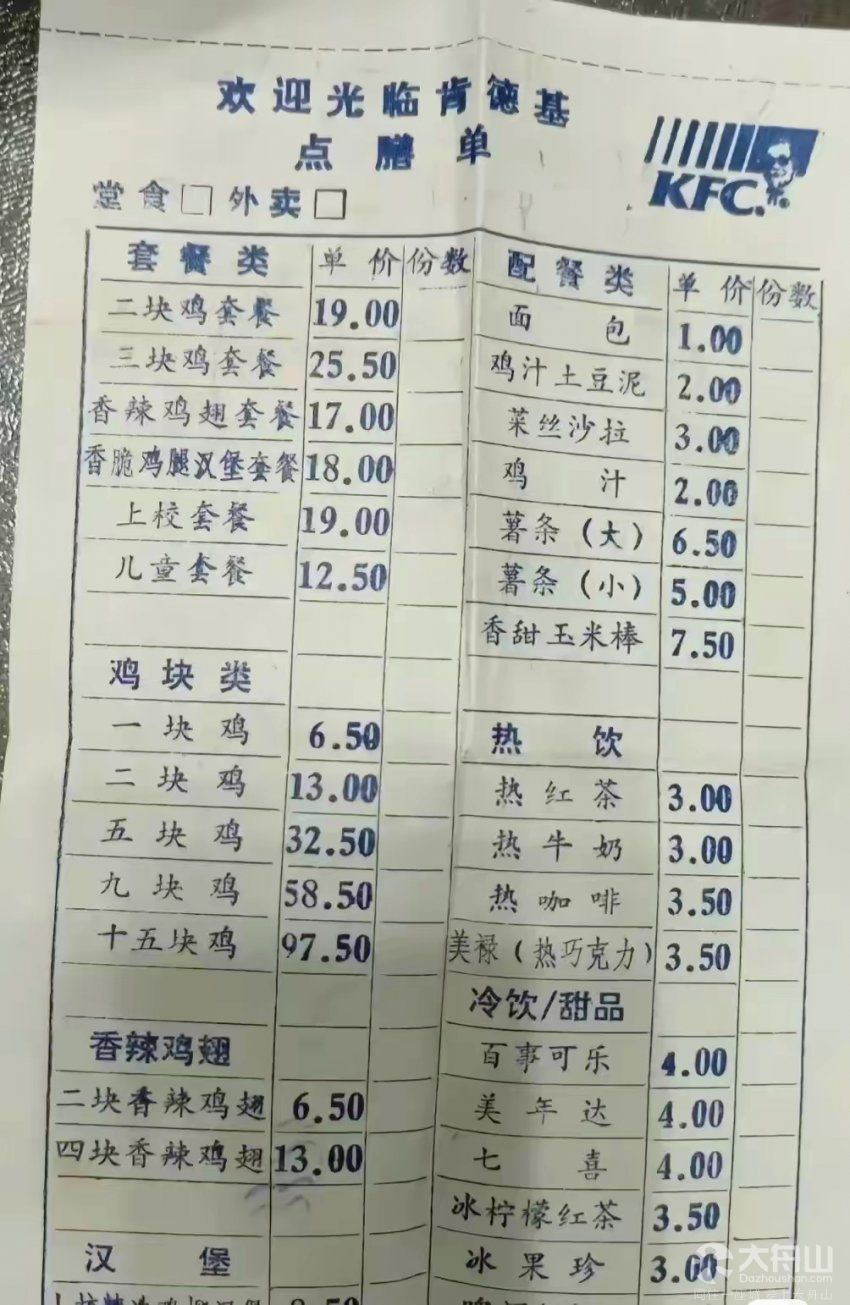 欢迎光临肯德基
点膳单
KFC.
堂食□ 外卖□
套餐类 单价 份数
二块鸡套餐 19.00
三块鸡套餐 25.50
香辣鸡翅套餐 17.00
香脆鸡腿汉堡套餐 18.00
上校套餐 19.00
儿童套餐 12.50
鸡块类
一块鸡 6.50
二块鸡 13.00
五块鸡 32.50
九块鸡 58.50
十五块鸡 97.50
香辣鸡翅
二块香辣鸡翅 6.50
四块香辣鸡翅 13.00
汉堡
配餐类 单价 份数
面包 1.00
鸡汁土豆泥 2.00
菜丝沙拉 3.00
鸡汁 2.00
薯条(大) 6.50
薯条(小) 5.00
香甜玉米棒 7.50
热饮
热红茶 3.00
热牛奶 3.00
热咖啡 3.50
美禄(热巧克力) 3.50
冷饮/甜品
百事可乐 4.00
美年达 4.00
七喜 4.00
冰柠檬红茶 3.50
冰果珍 3.00
大舟山
Dazhoushan.com